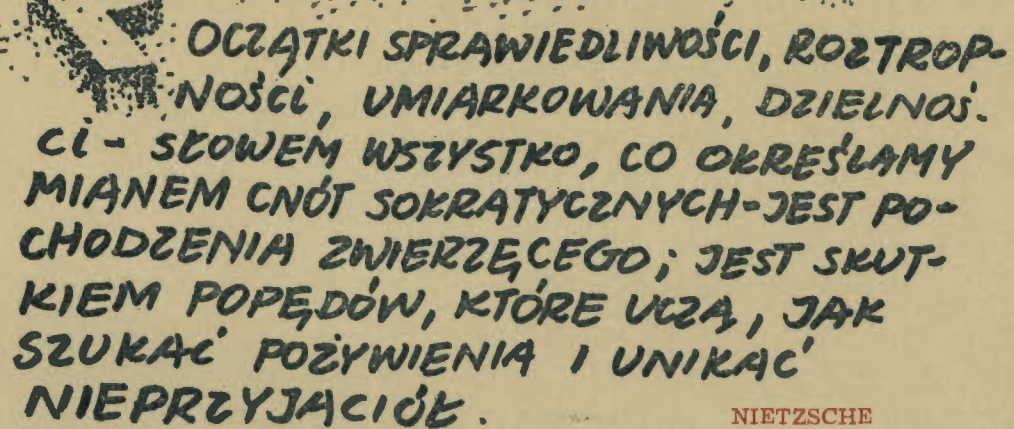 OCZĄTKI SPRAWIEDLIWOŚCI, ROZTROP-
NOŚCI, UMIARKOWANIA, DZIELNOŚ-
CI - SŁOWEM WSZYSTKO, CO OKREŚLAMY
MIANEM CNÓT SOKRATYCZNYCH - JEST PO-
CHODZENIA ZWIERZĘCEGO; JEST SKUT-
KIEM POPĘDÓW, KTÓRE UCZĄ, JAK
SZUKAĆ POŻYWIENIA I UNIKAĆ
NIEPRZYJACIÓŁ.
NIETZSCHE